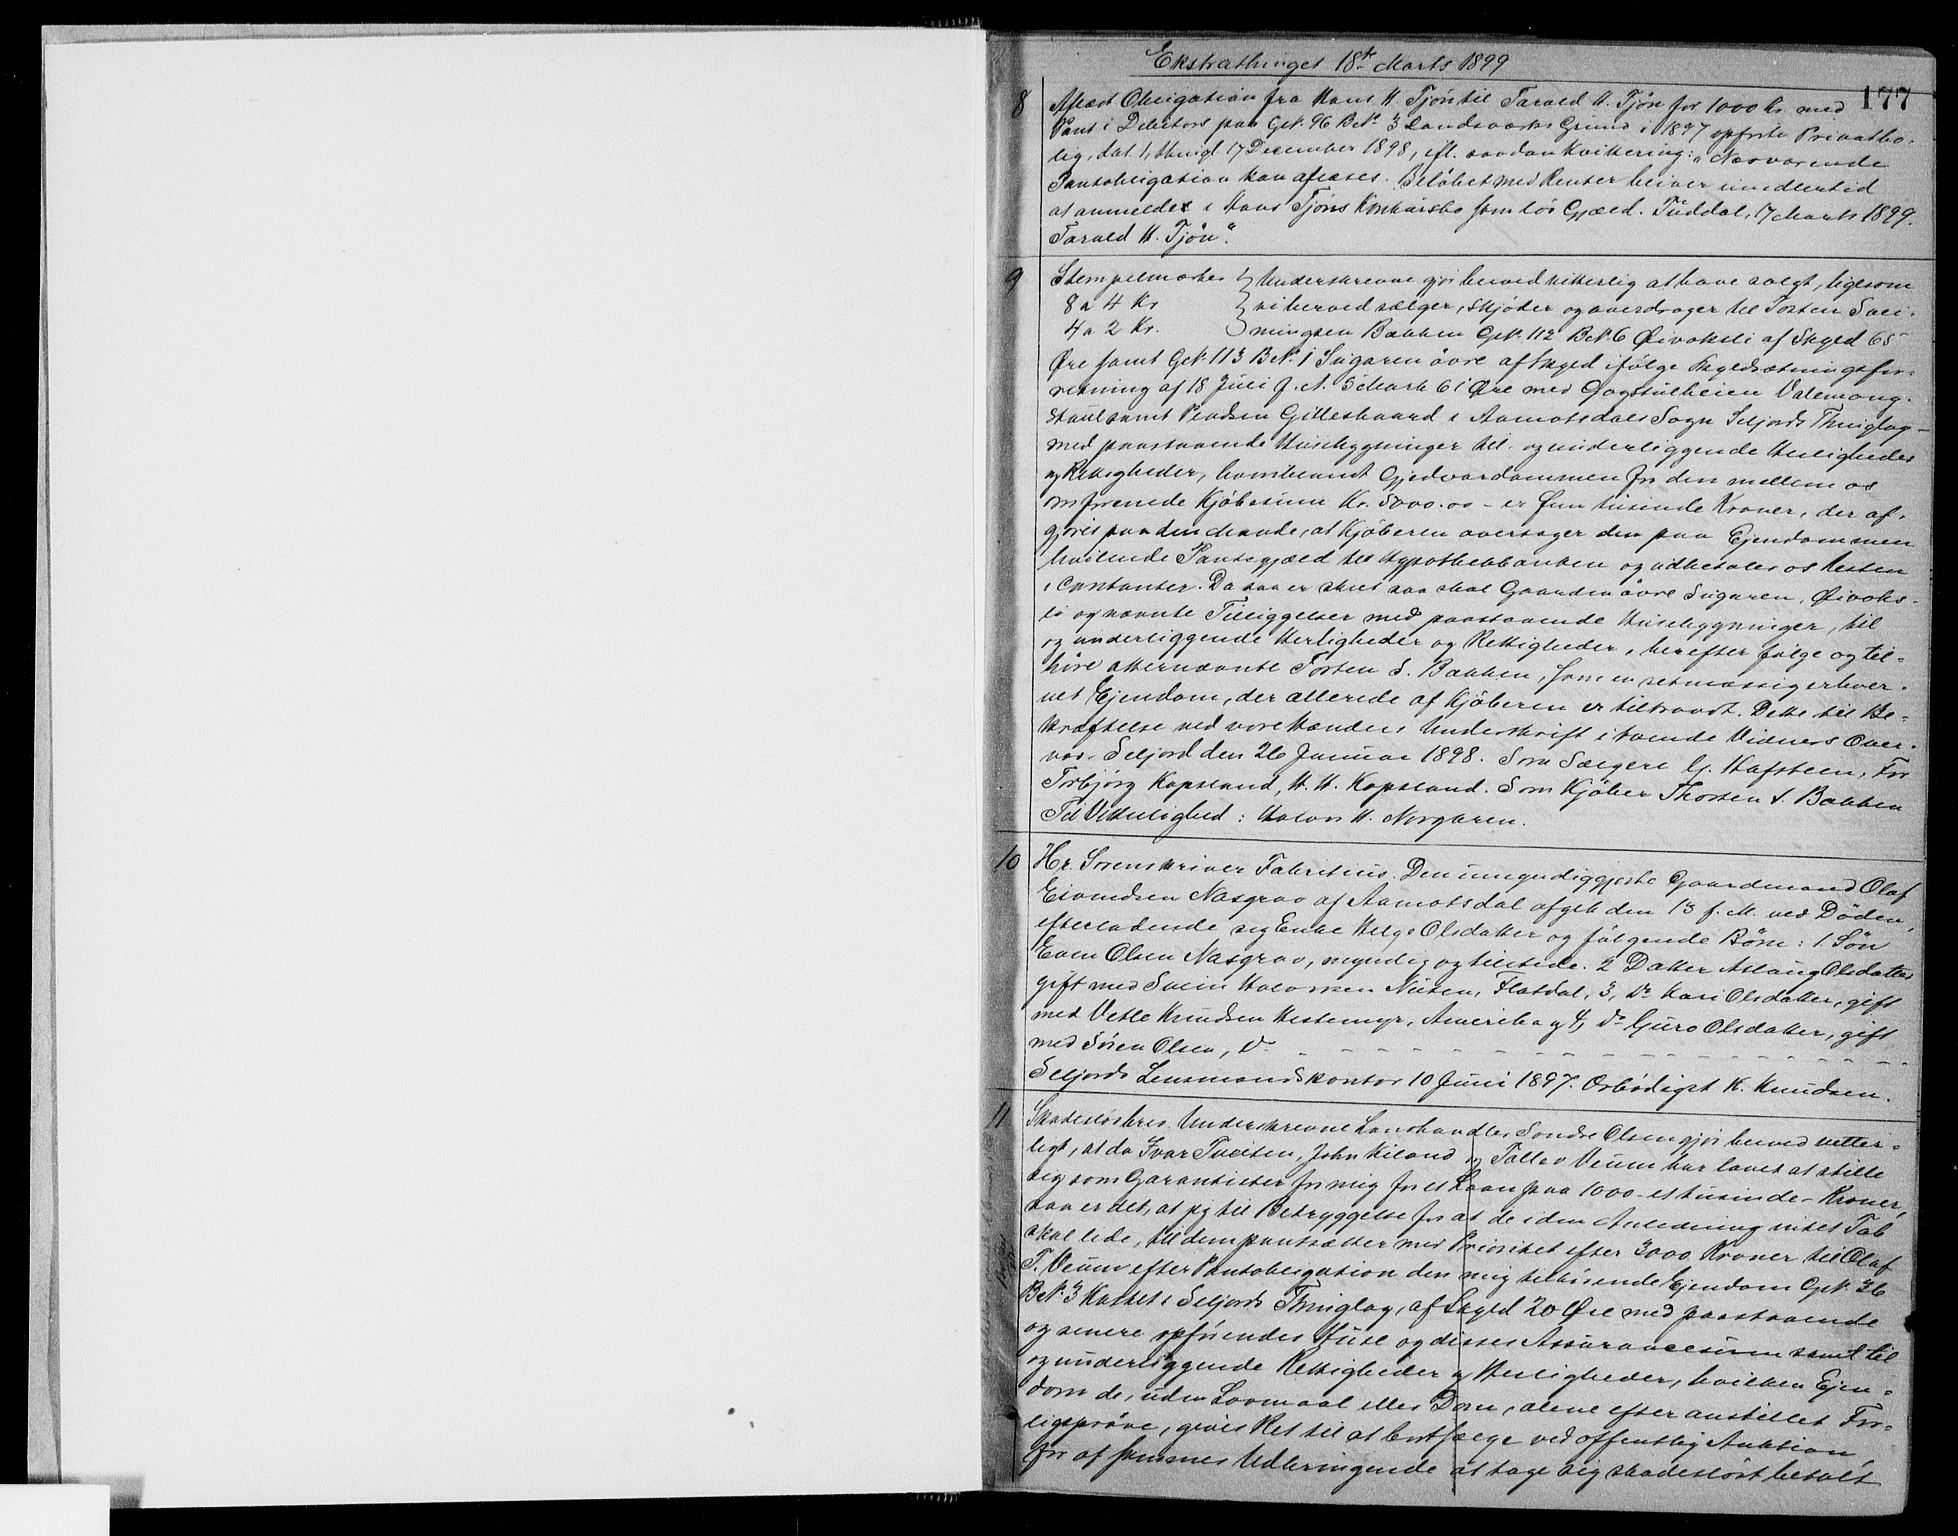 Ekstrathinget 18de Marts 1899
177
8 Aflæst Obligation fra Hans H. Tjøn til Tarald H. Tjøn for 1000 Kr. med
Pant i Debitors paa GN. 96 BN. 3 Landsværks Grund i 1897 opførte Privatbo-
lig, dat. 1, thingl. 17 December 1898, efl. saadan Kvittering: "Nærværende
Pantobligation kan aflæses. Beløbet med Renter bliver imidlertid
at anmeldes i Hans Tjøns Konkursbo som løs Gjæld. Tuddal, 7 Marts 1899.
Tarald H. Tjøn".
9 Stempelmærker } Underskrevne gjør herved vitterlig at have solgt, ligesom
8 a 4 Kr. } vi herved sælger, skjøder og overdrager til Torsten Svei-
4 a 2 Kr. } nungsen Bakken GN. 112 BN. 6 Øivoksli af Skyld 65
Øre samt GN. 113 BN. 1 Sugaren øvre af Skyld ifølge Skyldsætningsfor-
retning af 18 Juli f. A. 5 Mark 61 Øre med Gogstulheien Valemong-
støul samt Pladsen Gilleshaard i Aamotsdals Sogn Seljords Thinglag
med paastaaende Husebygninger til- og underliggende Herligheder
og Rettigheder, heriblandt Gjedvardammen for den mellem os
omforenede Kjøbesum Kr. 5000.00 - er Fem tusinde Kroner, der af-
gjøres paa den Maade, at Kjøberen overtager den paa Ejendommen
hvilende Pantegjæld til Hypothekbanken og udbetaler os Resten
i Contanter. Da saa er skeet saa skal Gaarden øvre Sugaren, Øivoks-
li og nævnte Tilliggelser med paastaaende Husebygninger, til
og underliggende Herligheder og Rettigheder, herefter følge og til-
høre allernævnte Torsten S. Bakken, som en retmæssig erhver-
vet Ejendom, der allerede af Kjøberen er tiltraadt. Dette til Be-
kræftelse ved vore Hænders Underskrift i tvende Vidners Over-
vær. Seljord den 26 Januar 1898. Som Sælgere G. Hafsteen, For
Torbjørg Kapsland, H. H. Kapsland. Som Kjøber Thorsten S. Bakken
Til Vitterlighed: Halvor H. Norgaren.
10 Hr. Sorenskriver Fabritius. Den umyndiggjorte Gaardmand Olaf
Eivindsen Nasgrav af Aamotsdal afgik den 13 f. M. ved Døden,
efterladende sig Enke Helge Olsdatter og følgende Børn: 1. Søn
Even Olsen Nasgrav, myndig og tilstede. 2 Datter Aslaug Olsdatter
gift med Svein Halvorsen Nuten, Flatdal, 3, Do Kari Olsdatter, gift
med Vetle Knudsen Hestemyr, Amerika og 4, Do Guro Olsdatter, gift
med Søren Olsen, Do - - - - - - - - - -
Seljords Lensmandskontor 10 Juni 1897. Ærbødigst K. Knudsen.
11 Skadesløsbrev. Underskrevne Landhandler Sondre Olsen gjør herved vitter-
ligt, at da Ivar Tveiten, John Kiland og Tallev Veum har lovet at stille
sig som Garantister for mig for et Laan paa 1000 - et tusinde - Kroner,
saa er det, at jeg til Betryggelse for at de i den Anledning intet Tab
skal lide, til dem pantsætter med Prioritet efter 3000 Kroner til Olaf
T. Veum efter Pantobligation den mig tilhørende Ejendom GN. 36
BN. 3 i Seljords Thinglag, af Skyld 20 Øre med paastaaende
og senere opførendes Huse og disses Assurancesum samt til
og underliggende Rettigheder og Herligheder, hvilken Ejen-
dom de, uden Lovmaal eller Dom, alene efter anstillet For-
ligsprøve, gives Ret til at bortsælge ved offentlig Auktion
for af sammes Udbringende at tage sig skadesløst betalt